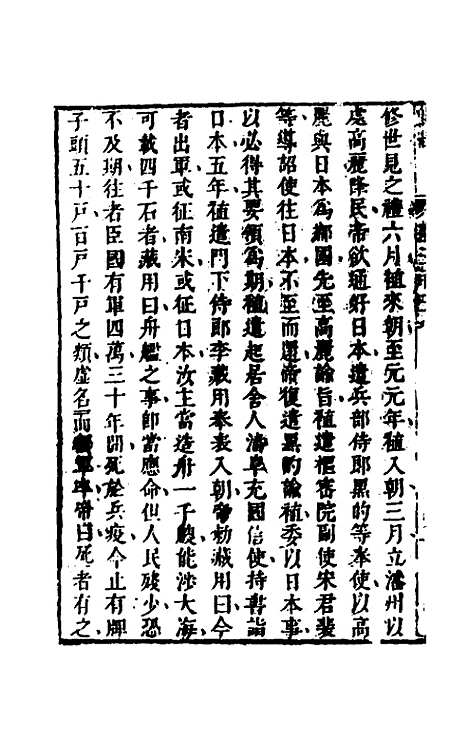 修世見之禮六月植來朝至元元年植入朝三月立瀋州以
處高麗降民帝欲通好日本遣兵部侍郎黑的等奉使以高
麗與日本爲鄰國先至高麗諭旨植遣樞密院副使宋君斐
等導詔使往日本不至而還帝復遣黑的諭植委以日本事
以必得其要領爲期植遣起居舍人潘阜充國信使持書詣
日本五年植遣門下侍郎李藏用奉表入朝帝勅藏用曰今
者出軍或征南宋或征日本汝主當造舟一千艘能涉大海
可載四千石者藏用曰舟艦之事即當應命但人民殘少恐
不及期往者臣國有軍四萬三十年閒死於兵疫今止有牌
子頭五十戸百戸千戸之類虛名而無軍卒帝曰死者有之